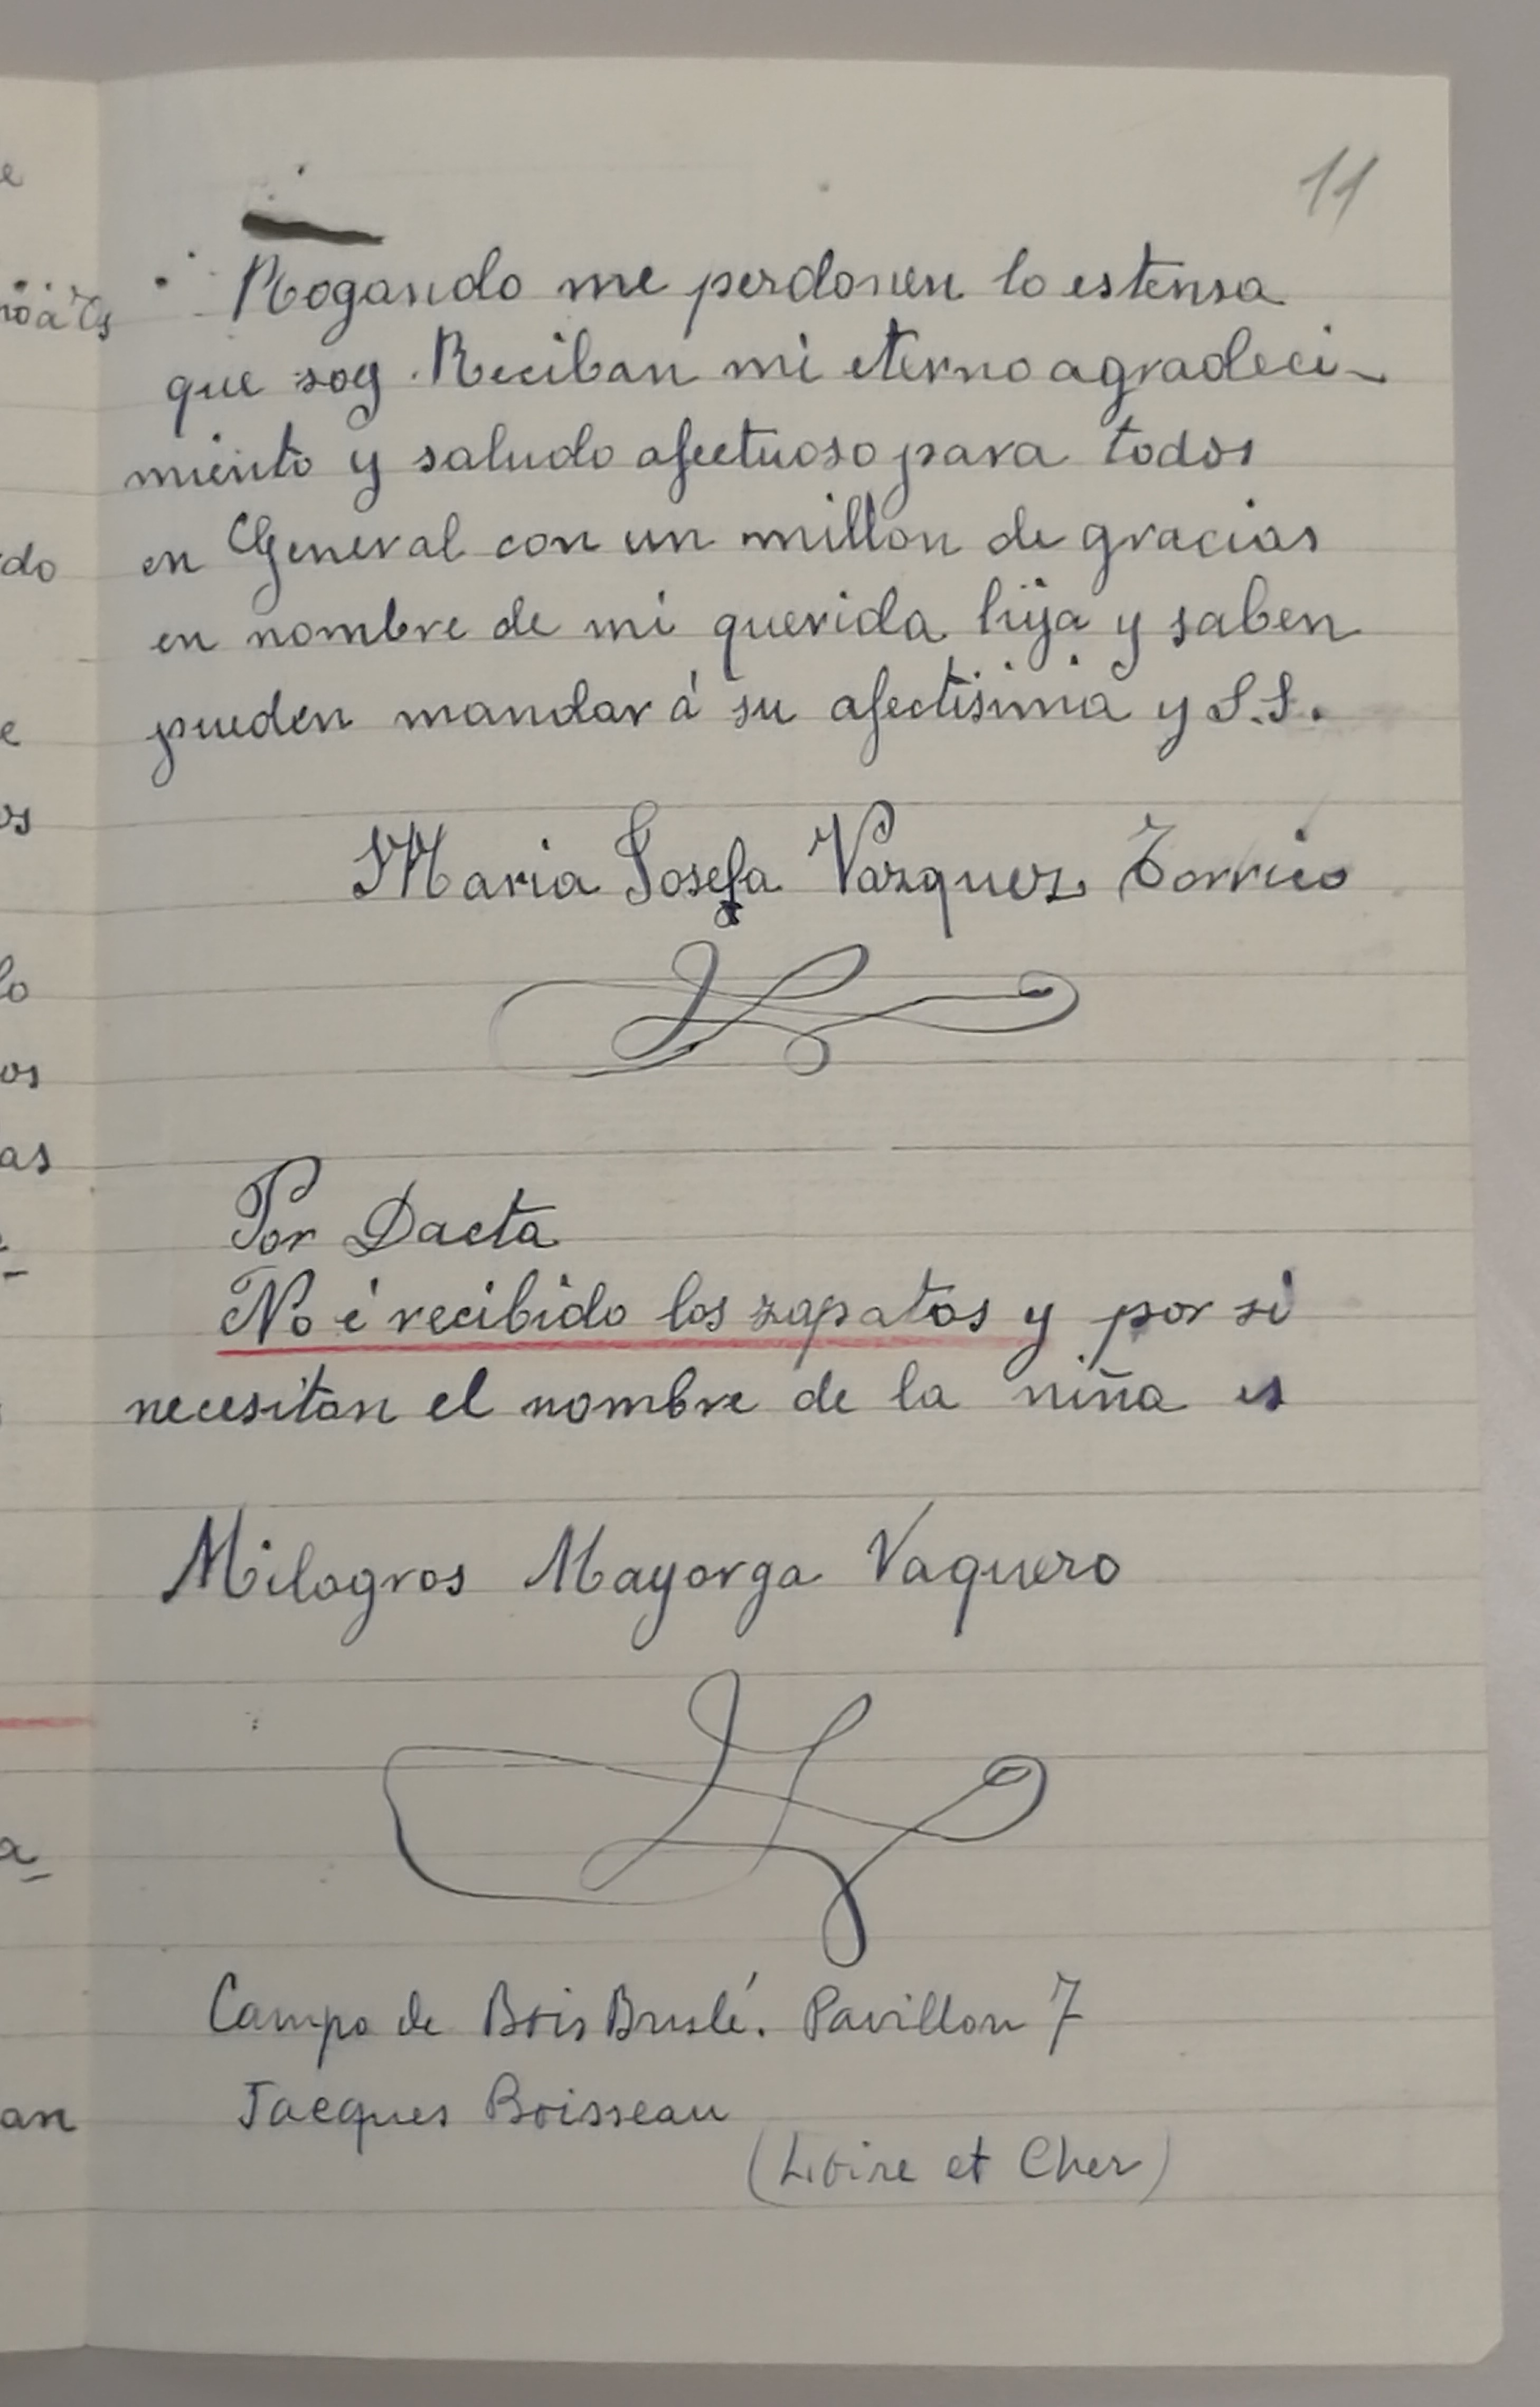 11
Rogando me perdonen lo estensa
que soy. Reciban mi eterno agradeci-
miento y saludo afectuoso para todos
en General con un millon de gracias
en nombre de mi querida hija y saben
pueden mandar á su afectisima y S.S.
Maria Josefa Vazquez Torrico
Por Dacta
No é recibido los zapatos y por si
necesitan el nombre de la niña es
Milagros Mayorga Vaquero
Campo de Bois Brulé. Pavillon 7
Jacques Boisseau
(Loire et Cher)